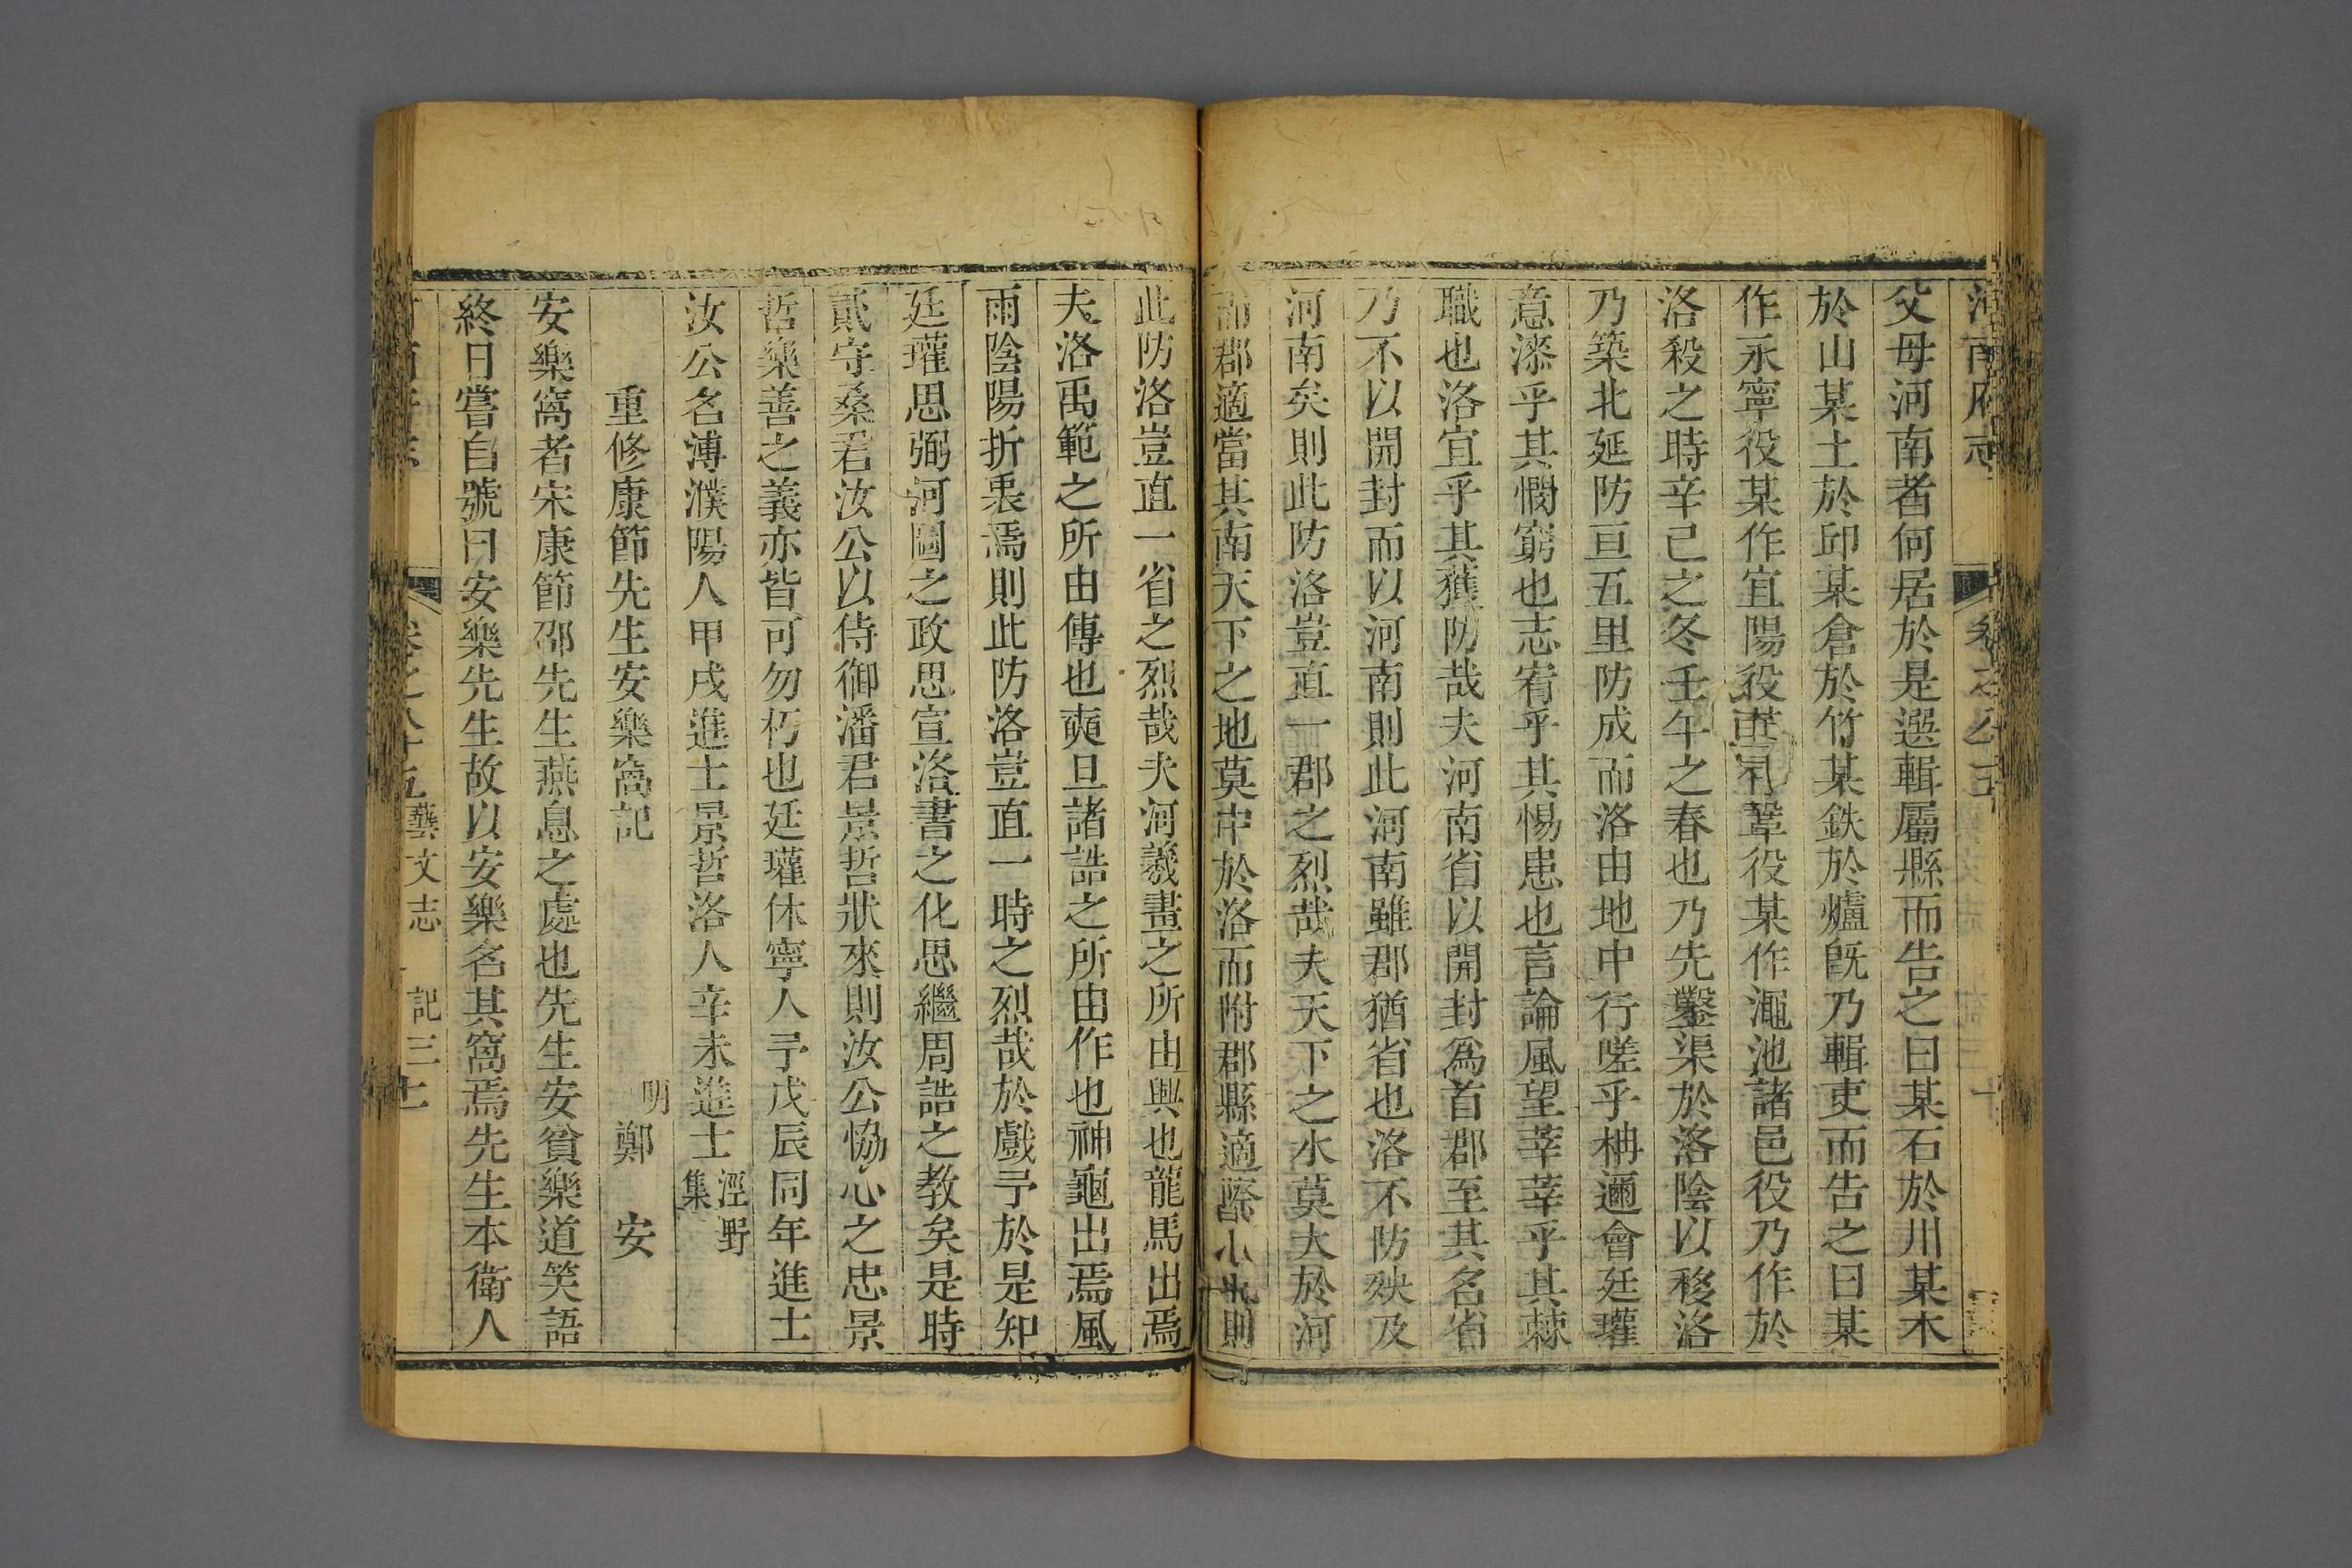 河南府志
父母河南者何居於是選輯屬縣而告之曰某石於川某木
於山某土於邱某倉於竹某鉄於爐旣乃輯吏而告之曰某
作永寧役某作宜陽役某作鞏役某作澠池諸邑役乃作於
洛殺之時辛己之冬壬午之春也乃先鑿渠於洛陰以移洛
乃築北延防亘五里防成而洛由地中行嗟乎枏邇會廷瓘
意漆乎其憫窮也志宥乎其惕患也言論風望莘莘乎其棘
職也洛宜乎其獲防哉夫河南省以開封爲首郡至其名省
乃不以開封而以河南則此河南雖郡猶省也洛不防殃及
河南矣則此防洛豈直一郡之烈哉夫天下之水莫大於河
而郡適當其南天下之地莫中於洛而附郡縣適際小則
此防洛豈直一省之烈哉夫河羲畫之所由興也龍馬出焉
夫洛禹範之所由傳也奭旦諸誥之所由作也神龜出焉風
雨陰陽折衷焉則此防洛豈直一時之烈哉於戲予於是知
廷瓘思弼河圖之政思宣洛書之化思繼周誥之教矣是時
貳守桑君汝公以侍御潘君景哲狀來則汝公恊心之忠景
哲樂善之義亦皆可勿朽也廷瓘休寧人予戊辰同年進士
汝公名溥濮陽人甲戌進士景哲洛人辛未進士涇野集
重修康節先生安樂窩記
明鄭安
安樂窩者宋康節邵先生燕息之處也先生安貧樂道笑語
終日嘗自號曰安樂先生故以安樂名其窩焉先生本衛人
卷之八十五藝文志 記三 十